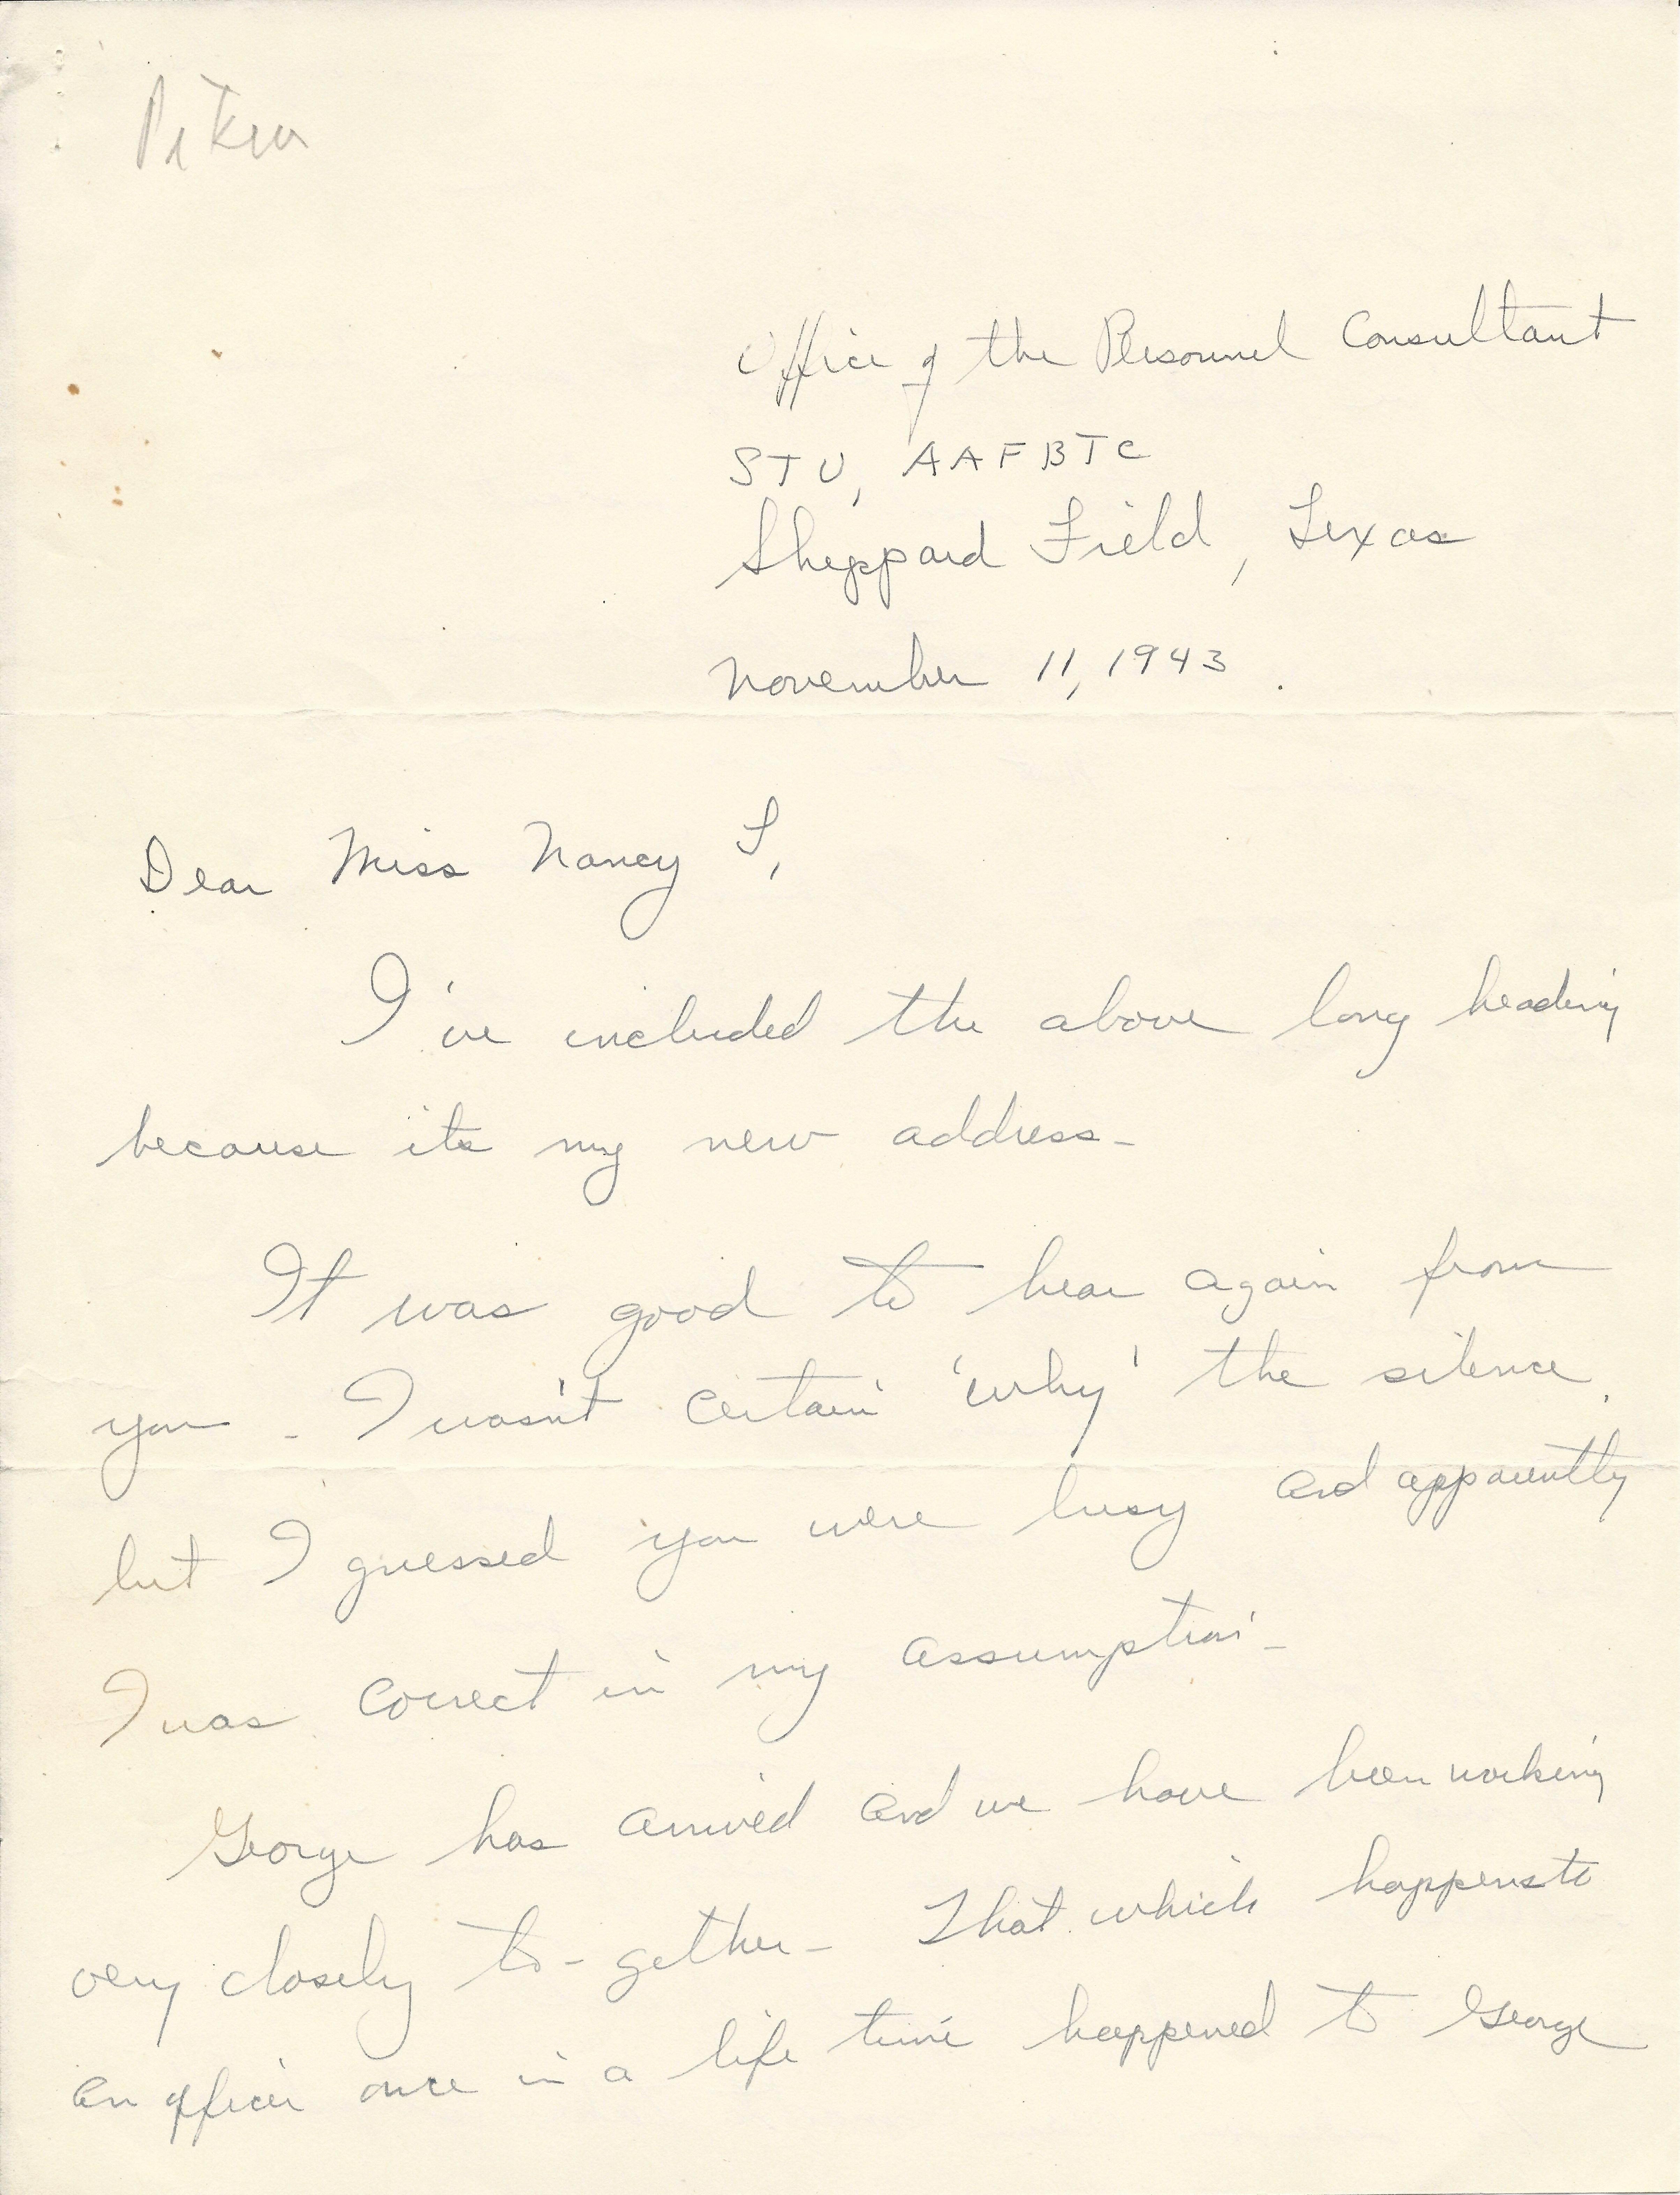 Office of the Personnel Consultant
STU, AAFBTC
Sheppard Field, Texas
November 11, 1943.
Dear Miss Nancy T,
I've included the above long heading
because its my new address-
It was good to hear again from
you - I wasn't certain 'why' the silence,
but I guessed you were busy and apparently
I was correct in my assumption-
George has arrived and we have been working
very closely to-gether- That which happens to
an officer once in a life time happened to George